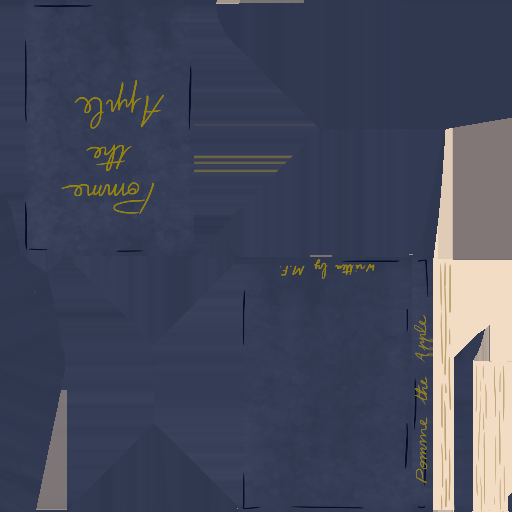 Pomme
the
Apple
Written by M.F.
Pomme the Apple